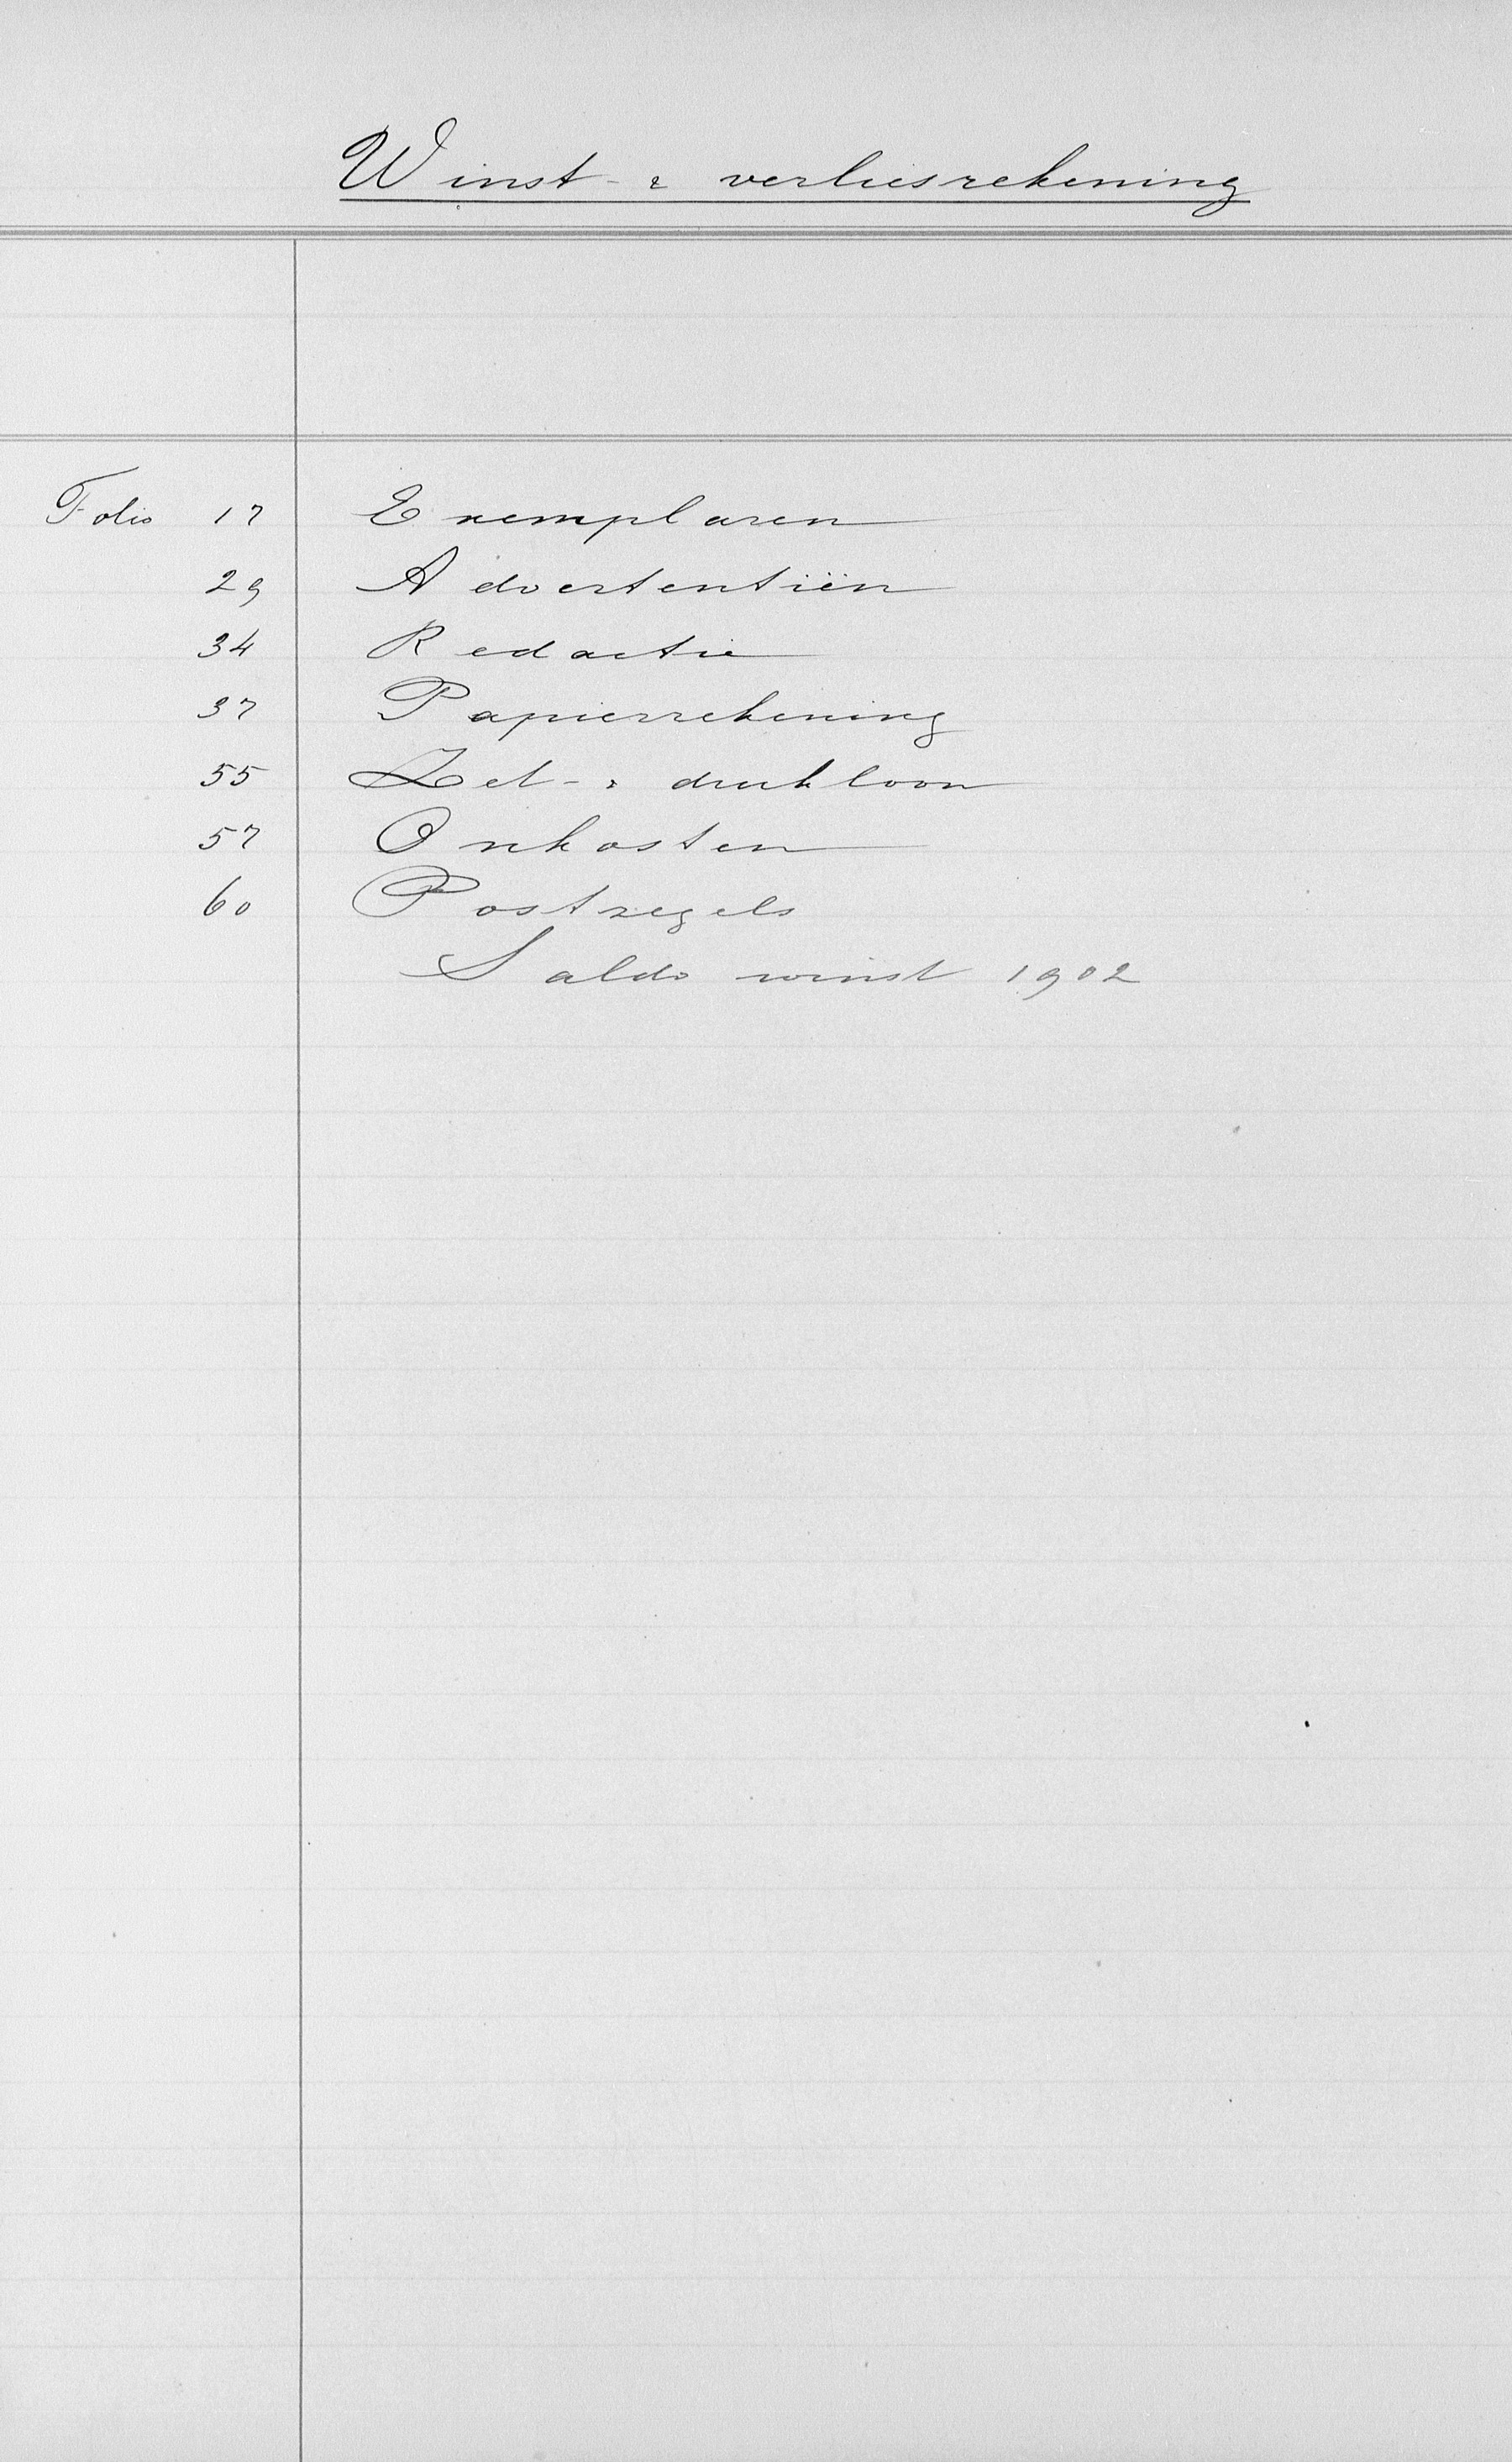 Winst- & verliesrekening
Folio 17 Exemplaren
29 Advertentiën
34 Redactie
37 Papierrekening
55 Zet- & drukloon
57 Onkosten
60 Postzegels
Saldo winst 1902